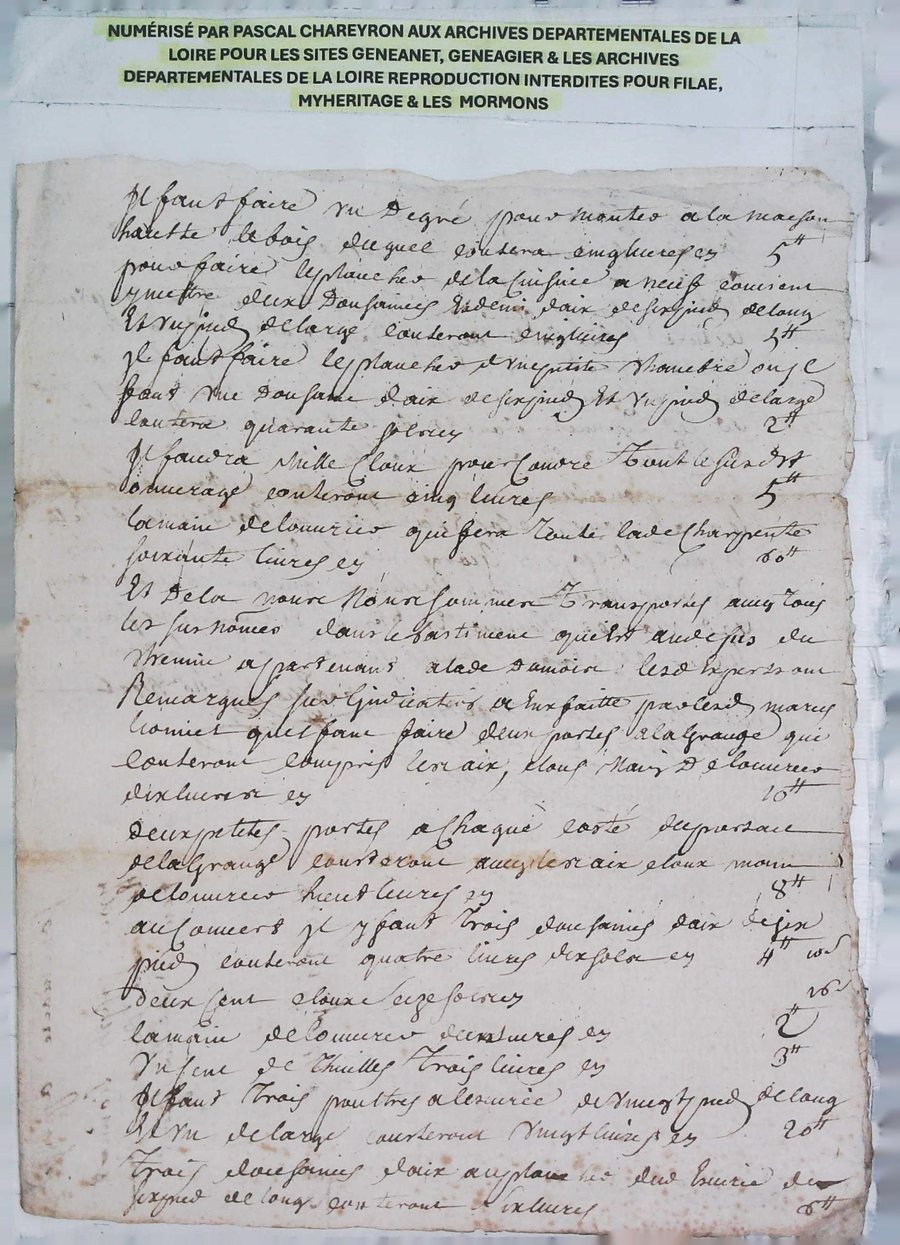 NUMÉRISÉ PAR PASCAL CHAREYRON AUX ARCHIVES DEPARTEMENTALES DE LA
LOIRE POUR LES SITES GENEANET, GENEAGIER & LES ARCHIVES
DEPARTEMENTALES DE LA LOIRE REPRODUCTION INTERDITES POUR FILAE,
MYHERITAGE & LES MORMONS
Jl faut faire un Degré pour monter a la maison
hautte le bois duquel coutera cinq livres cy 5tt
pour faire le plancher de la Cuisine a neuf convient
y mettre deux Dousaines et demi d'aix de six pied de long
Et un pied de large couteront cinq livres 5tt
Jl faut faire le plancher d'une petite chambre ou jl
faut une Dousaine d'aix de six pied Et un pied de large
coutera quarante sols cy 2tt
Jl faudra mille Cloux pour Coudre Tout le susdit
ouuerage couteront cinq livres 5tt
la main de louurier qui fera Toute lade Charpente
soixante livres cy 60tt
Et De la nous nous sommes Transportés avec tous
les sus nomées dans le bastiment quest au desus du
Chemin apartenant a lade Damoise lesd Experts ont
Remarqués sur l'judication a Eux faitte par led marcs
quil faut faire deux portes a la Grange qui
couteront compris les aix, clous Main De louurier
dix livres cy 10tt
deux petites portes a Chaque costé du portail
de la Grange cousteront avec les aix cloux main
de louurier huict livres cy 8tt
au Couvert jl y faut Trois dousaines d'aix de six
pied couteront quatre livres dix sols cy 4tt 10s
deux Cent cloux Seize sols cy 16s
la main de louurier deux livres cy 2tt
Un Cent de Thuilles Trois livres cy 3tt
Jl faut Trois pouttres a lescurie de vingt pied de long
et un de large cousteront vingt livres cy 20tt
Trois dousaines d'aix au plancher dud Escurie de
six pied de long couteront six livres 6tt